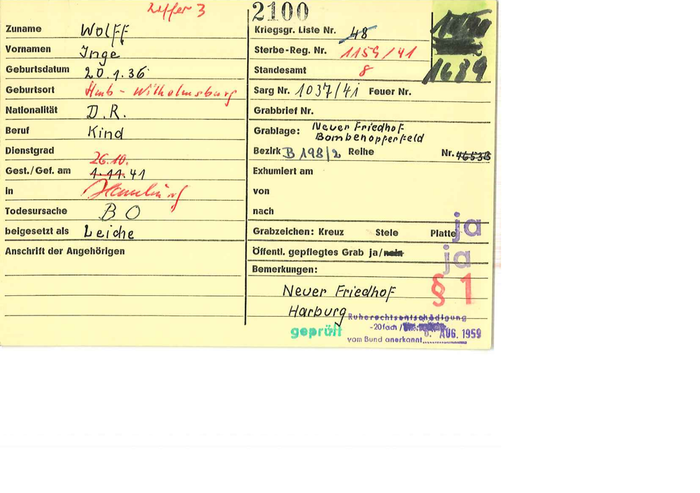 Ziffer 3
2100
Zuname Wolff
Vornamen Inge
Geburtsdatum 20.1.36
Geburtsort Hmb - Wilhelmsburg
Nationalität D.R.
Beruf Kind
Dienstgrad
26.10.
Gest./Gef. am 1.11.41
in Hamburg
Todesursache B O
beigesetzt als Leiche
Anschrift der Angehörigen
Kriegsgr. Liste Nr. 48
Sterbe-Reg. Nr. 1159/41
Standesamt 8
1689
Sarg Nr. 1037/41 Feuer Nr.
Grabbrief Nr.
Grablage: Neuer Friedhof
Bombenopferfeld
Bezirk B 198/2 Reihe Nr.
Exhumiert am
von
nach
Grabzeichen: Kreuz Stele Platte ja
Öffentl. gepflegtes Grab ja/nein ja
Bemerkungen: § 1
Neuer Friedhof
Harburg
geprüft
Ruherechtsentschädigung
-20fach/
6. AUG. 1959
vom Bund anerkannt